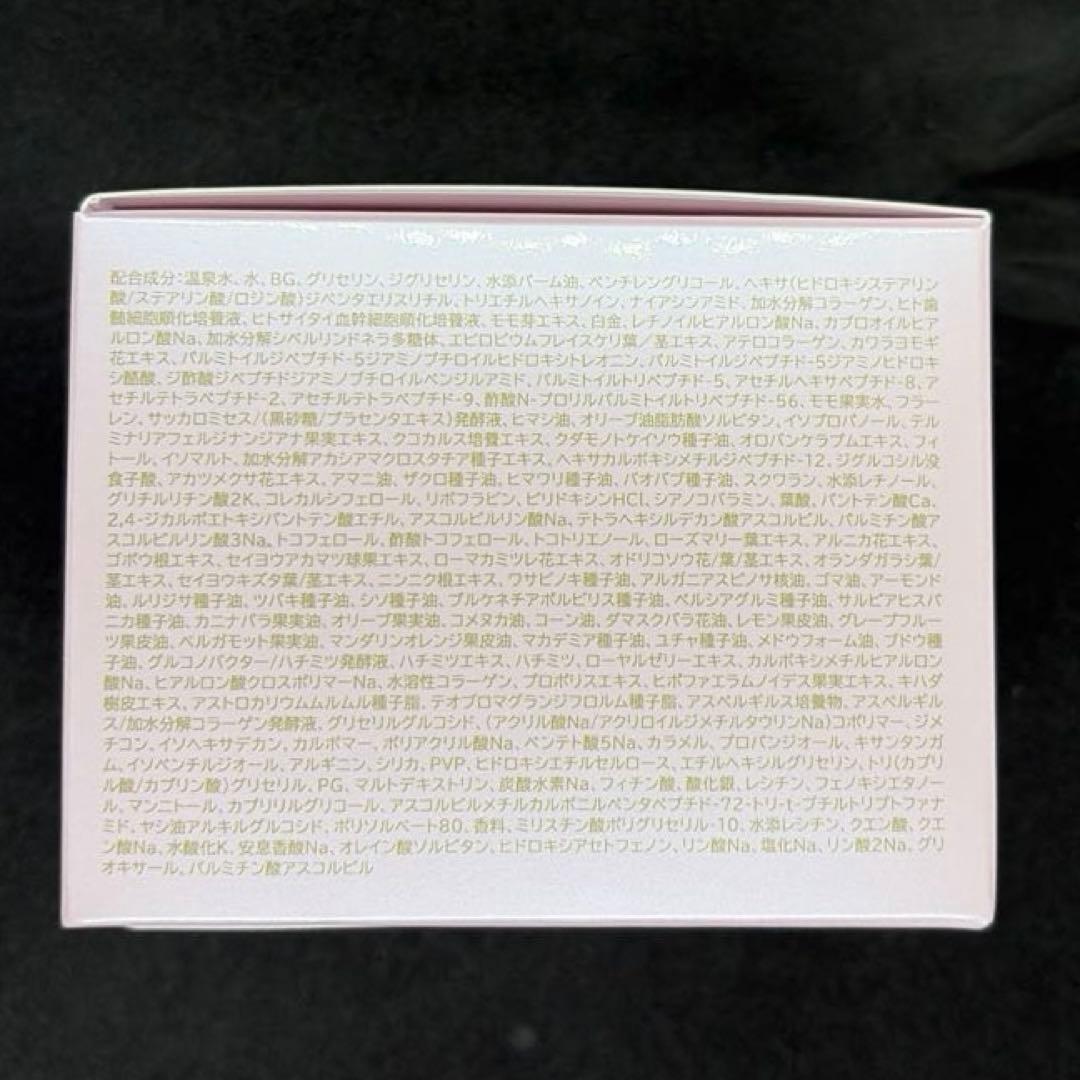 配合成分：温泉水、水、BG、グリセリン、ジグリセリン、水添パーム油、ペンチレングリコール、ヘキサ(ヒドロキシステアリン
酸/ステアリン酸/ロジン酸)ジペンタエリスリチル、トリエチルヘキサノイン、ナイアシンアミド、加水分解コラーゲン、ヒト歯
髄細胞順化培養液、ヒトサイタイ血幹細胞順化培養液、モモ芽エキス、白金、レチノイルヒアルロン酸Na、カプロオイルヒア
ルロン酸Na、加水分解シベルリンドネラ多糖体、エピロビウムフレイスケリ葉/茎エキス、アテロコラーゲン、カワラヨモギ
花エキス、パルミトイルジペプチド-5ジアミノブチロイルヒドロキシトレオニン、パルミトイルジペプチド-5ジアミノヒドロキ
シ酪酸、ジ酢酸ジペプチドジアミノブチロイルベンジルアミド、パルミトイルトリペプチド-5、アセチルヘキサペプチド-8、ア
セチルテトラペプチド-2、アセチルテトラペプチド-9、酢酸N-プロリルパルミトイルトリペプチド-56、モモ果実水、フラー
レン、サッカロミセス/(黒砂糖/プラセンタエキス)発酵液、ヒマシ油、オリーブ油脂肪酸ソルビタン、イソプロパノール、テル
ミナリアフェルジナンジアナ果実エキス、クコカルス培養エキス、クダモノトケイソウ種子油、オロバンケラプムエキス、フィ
トール、イソマルト、加水分解アカシアマクロスタチア種子エキス、ヘキサカルボキシメチルジペプチド-12、ジグルコシル没
食子酸、アカツメクサ花エキス、アマニ油、ザクロ種子油、ヒマワリ種子油、バオバブ種子油、スクワラン、水添レチノール、
グリチルリチン酸2K、コレカルシフェロール、リボフラビン、ピリドキシンHCl、シアノコバラミン、葉酸、パントテン酸Ca、
2,4-ジカルボエトキシパントテン酸エチル、アスコルビルリン酸Na、テトラヘキシルデカン酸アスコルビル、パルミチン酸ア
スコルビルリン酸3Na、トコフェロール、酢酸トコフェロール、トコトリエノール、ローズマリー葉エキス、アルニカ花エキス、
ゴボウ根エキス、セイヨウアカマツ球果エキス、ローマカミツレ花エキス、オドリコソウ花/葉/茎エキス、オランダガラシ葉/
茎エキス、セイヨウキズタ葉/茎エキス、ニンニク根エキス、ワサビノキ種子油、アルガニアスピノサ核油、ゴマ油、アーモンド
油、ルリジサ種子油、ツバキ種子油、シソ種子油、プルケネチアボルビリス種子油、ペルシアグルミ種子油、サルビアヒスパ
ニカ種子油、カニナバラ果実油、オリーブ果実油、コメヌカ油、コーン油、ダマスクバラ花油、レモン果皮油、グレープフルー
ツ果皮油、ベルガモット果実油、マンダリンオレンジ果皮油、マカデミア種子油、ユチャ種子油、メドウフォーム油、ブドウ種
子油、グルコノバクター/ハチミツ発酵液、ハチミツエキス、ハチミツ、ローヤルゼリーエキス、カルボキシメチルヒアルロン
酸Na、ヒアルロン酸クロスポリマーNa、水溶性コラーゲン、プロポリスエキス、ヒポファエラムノイデス果実エキス、キハダ
樹皮エキス、アストロカリウムムルムル種子脂、テオブロマグランジフロルム種子脂、アスペルギルス培養物、アスペルギル
ス/加水分解コラーゲン発酵液、グリセリルグルコシド、(アクリル酸Na/アクリロイルジメチルタウリンNa)コポリマー、ジメ
チコン、イソヘキサデカン、カルボマー、ポリアクリル酸Na、ペンテト酸5Na、カラメル、プロパンジオール、キサンタンガ
ム、イソペンチルジオール、アルギニン、シリカ、PVP、ヒドロキシエチルセルロース、エチルヘキシルグリセリン、トリ(カプリ
ル酸/カプリン酸)グリセリル、PG、マルトデキストリン、炭酸水素Na、フィチン酸、酸化銀、レシチン、フェノキシエタノー
ル、マンニトール、カプリリルグリコール、アスコルビルメチルカルボニルペンタペプチド-72-トリ-t-ブチルトリプトファナ
ミド、ヤシ油アルキルグルコシド、ポリソルベート80、香料、ミリスチン酸ポリグリセリル-10、水添レシチン、クエン酸、クエ
ン酸Na、水酸化K、安息香酸Na、オレイン酸ソルビタン、ヒドロキシアセトフェノン、リン酸Na、塩化Na、リン酸2Na、グリ
オキサール、パルミチン酸アスコルビル